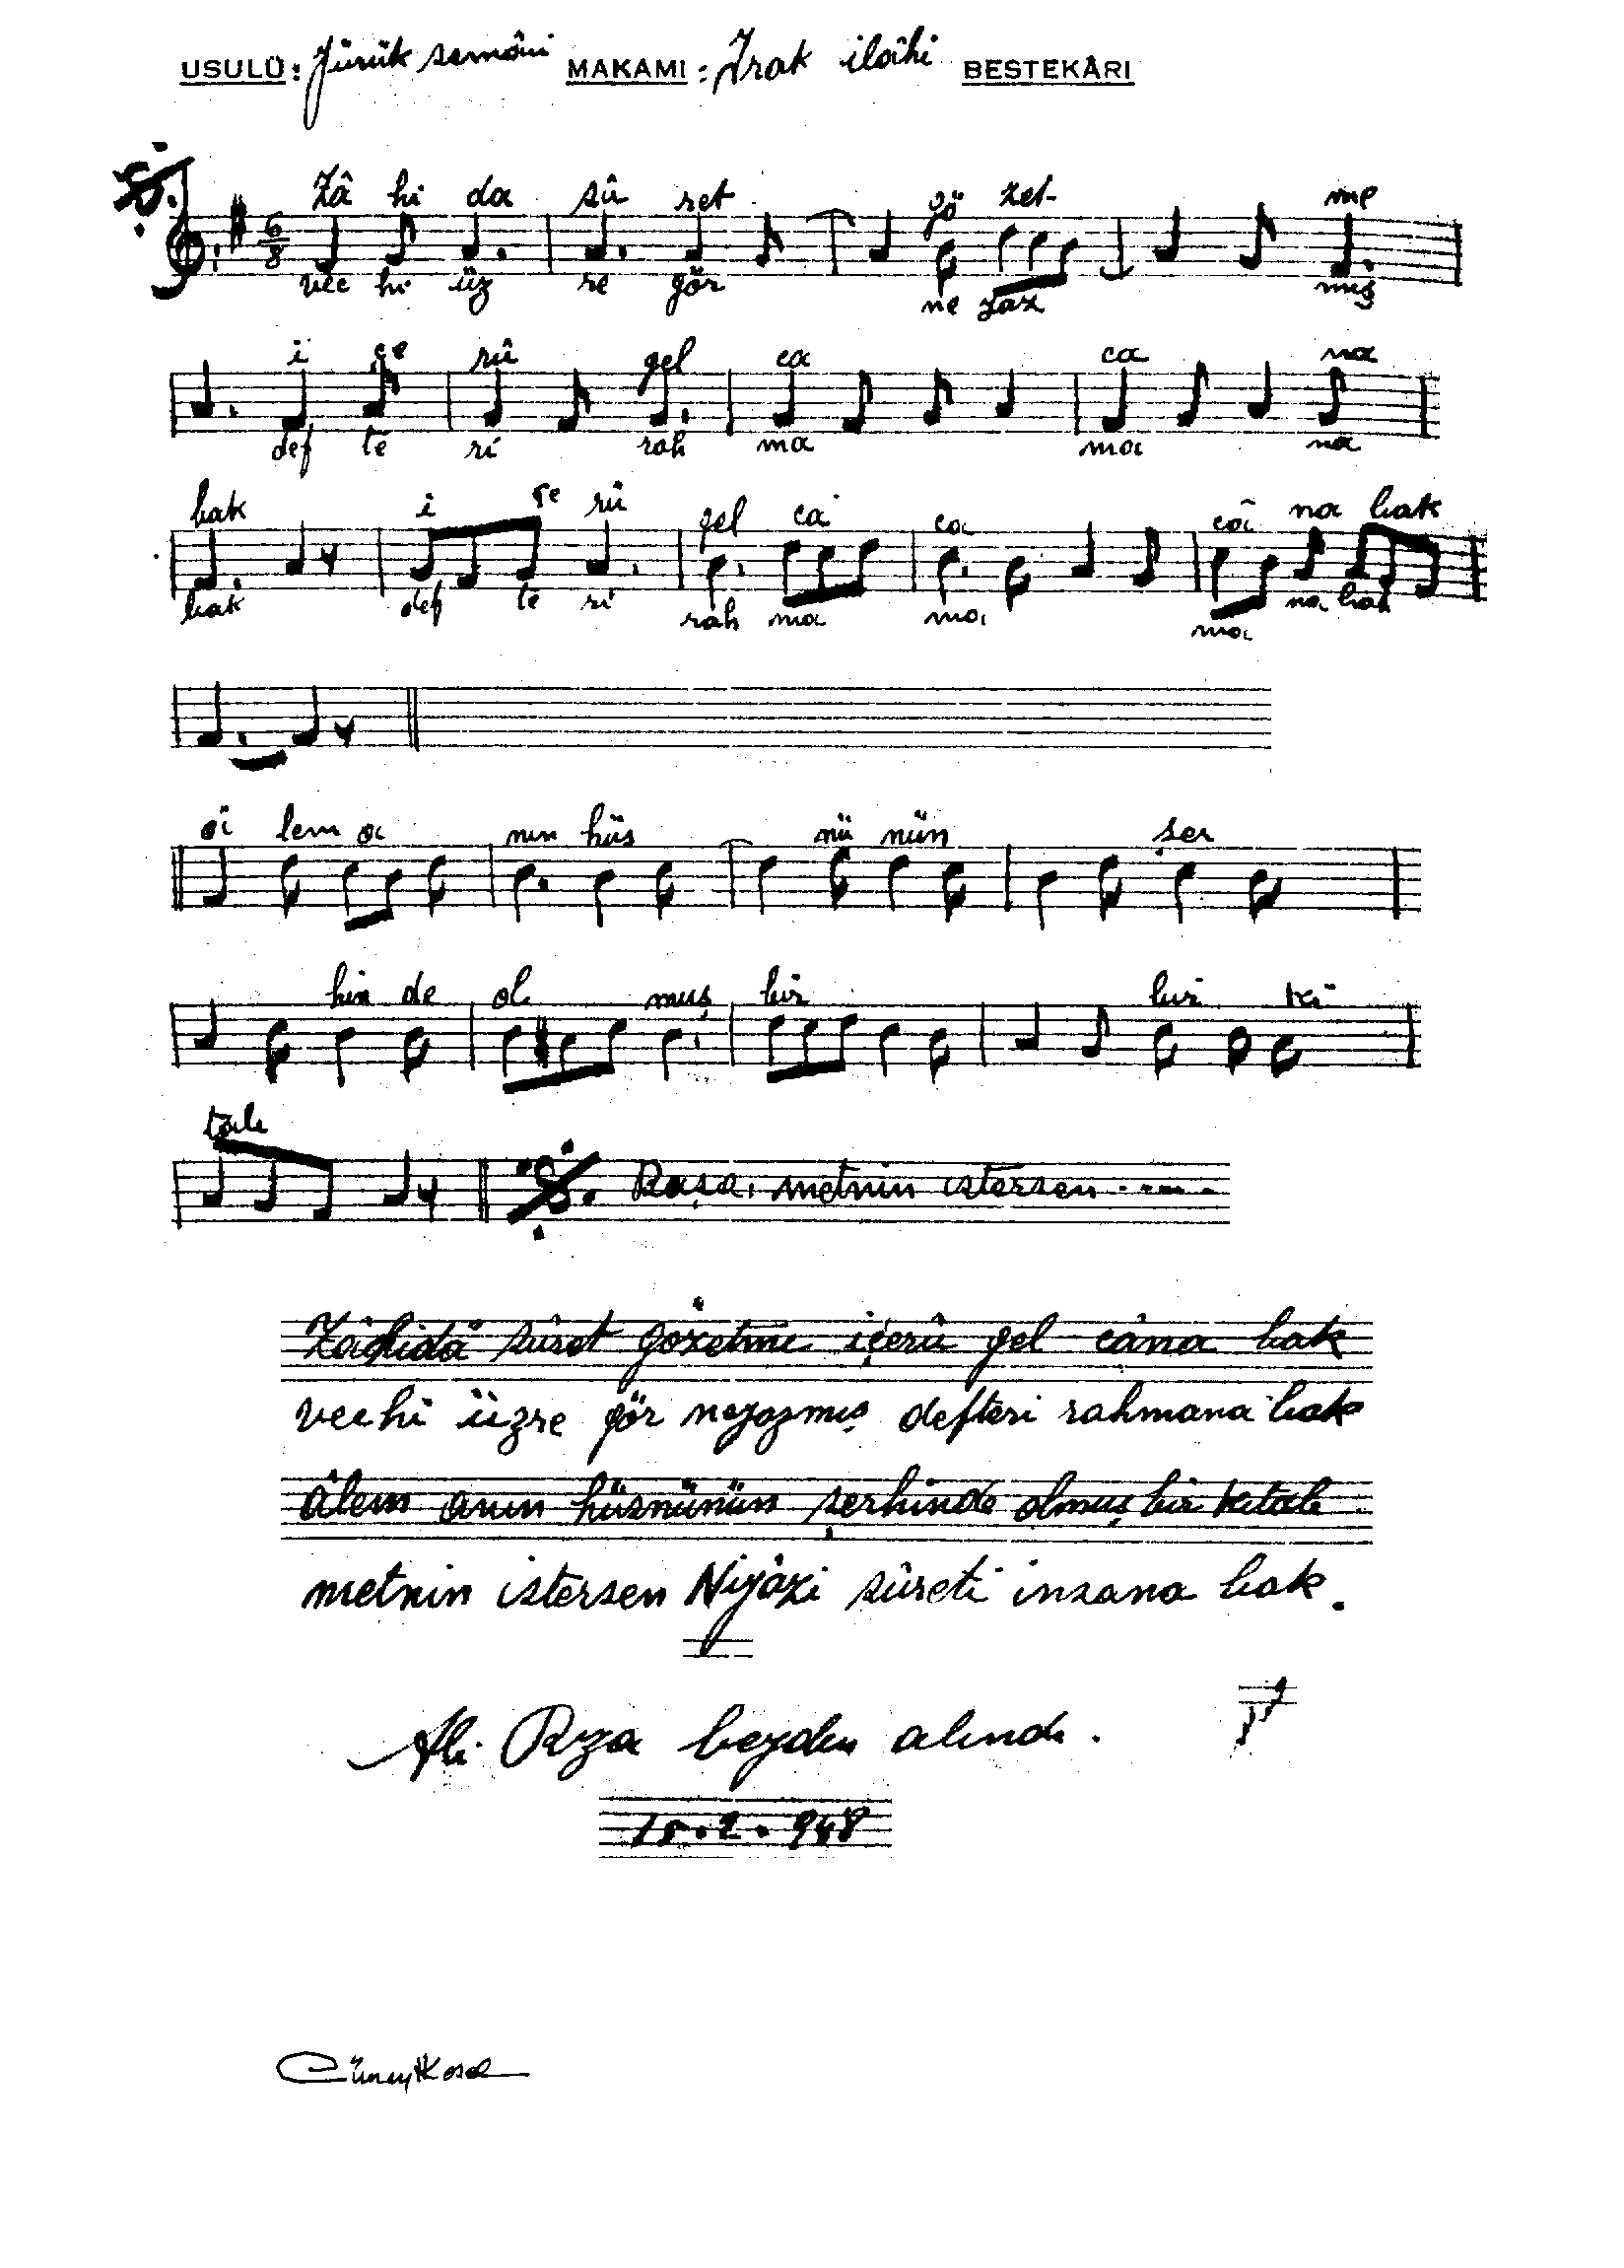 USULÜ: Yürük semâi MAKAMI: Irak ilâhi BESTEKÂRI
6/8
Zâ hi da sû ret gö zet- me
vec hi üz re gör ne yaz mış
i çe rû gel ca ca na
def te ri rah ma ma na
bak i çe rû gel ca ca câ na bak
bak def te ri rah ma ma ma na bak
â lem a nın hüs nü nün şer
hin de ol muş bir bir ki
tab
Başa, metnin istersen
Zâhidâ sûret gözetme içerû gel câna bak
vechi üzre gör neyazmış defteri rahmana bak
âlem anın hüsnünün şerhinde olmuş bir kitab
metnin istersen Niyâzi sûreti insana bak.
Ali Rıza beyden alındı.
15.2.948
Cüneyt Kosal